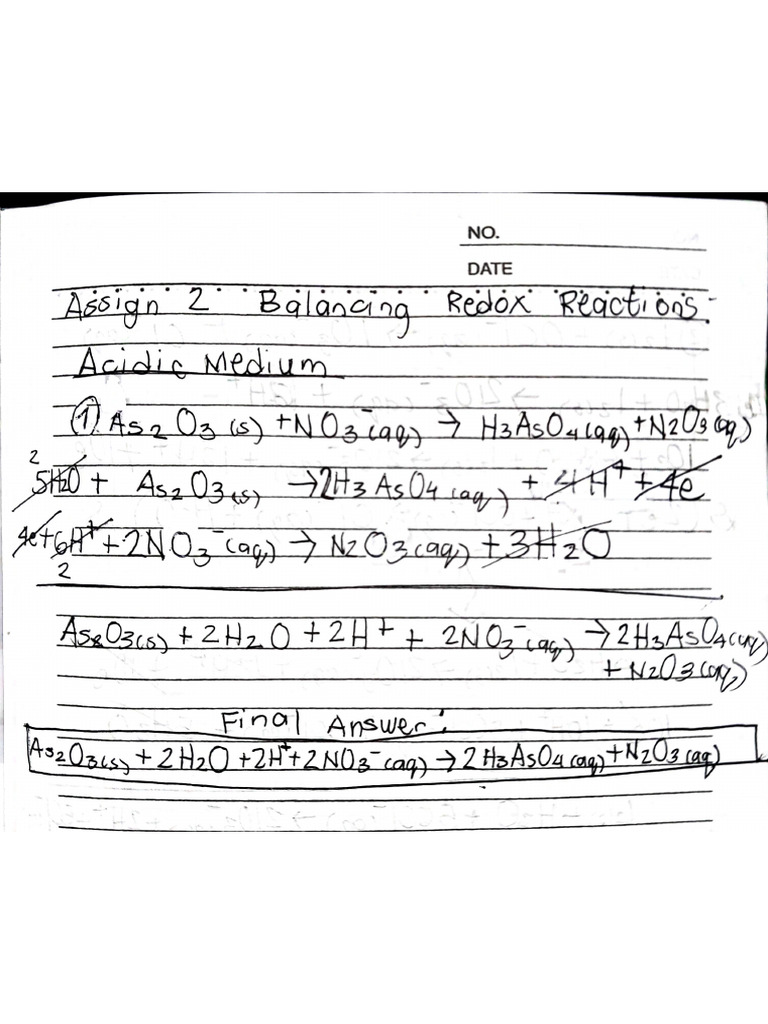 NO.
DATE
Assign 2 Balancing Redox Reactions:
Acidic Medium
① As2O3(s) + NO3-(aq) → H3AsO4(aq) + N2O3(aq)
2
5H2O + As2O3(s) → 2H3AsO4(aq) + 4H+ + 4e
4e + 6H+ + 2NO3-(aq) → N2O3(aq) + 3H2O
2
As2O3(s) + 2H2O + 2H+ + 2NO3-(aq) → 2H3AsO4(aq)
+ N2O3(aq)
Final Answer:
As2O3(s) + 2H2O + 2H+ + 2NO3-(aq) → 2H3AsO4(aq) + N2O3(aq)